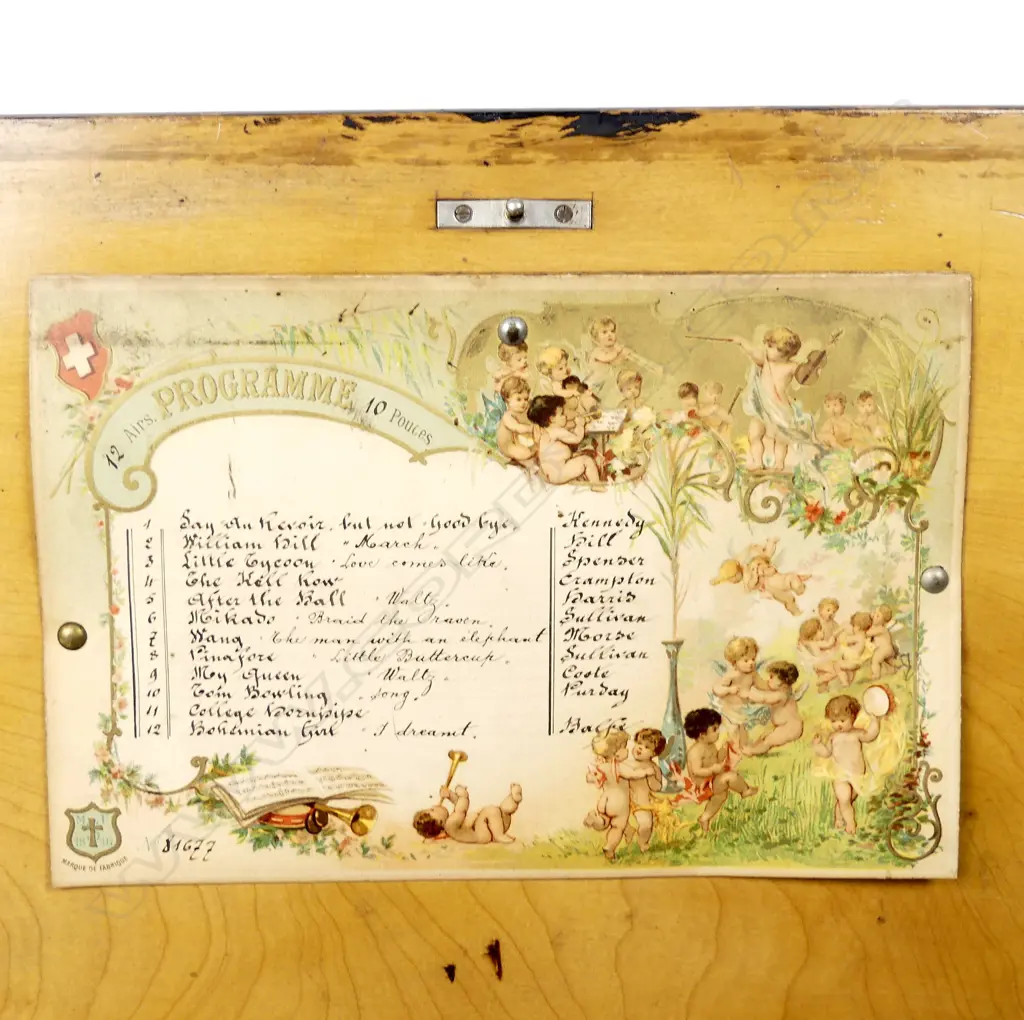 12 Airs. PROGRAMME 10 Pouces
1 Say Au Revoir, but not Good bye. Kennedy
2 William Hill " March " Hill
3 Little Tycoon " Love comes like. Spenser
4 The Kell Row Crampton
5 After the Ball " Waltz. Harris
6 Mikado " Braid the Raven. Sullivan
7 Wang " The man with an elephant Morse
8 Pinafore " Little Buttercup. Sullivan
9 My Queen " Waltz " Coote
10 Tom Bowling " Song. Purday
11 College Hornpipe
12 Bohemian Girl " I dreamt. Balfe
N° 81677
MARQUE DE FABRIQUE